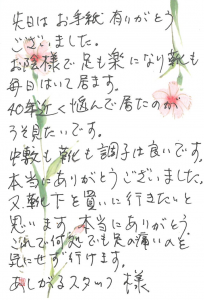 先日は お手紙 有りがとう
ございました。
お陰様で 足も楽になり 靴も
毎日はいて居ます。
40年近く悩んで居たのが
うそみたいです。
中敷も 靴も 調子は良いです。
本当にありがとうございました。
又、靴下を買いに行きたいと
思います。本当にありがとう
これで何処へでも足の痛いのを
気にせず行けます。
あしかるスタッフ 様